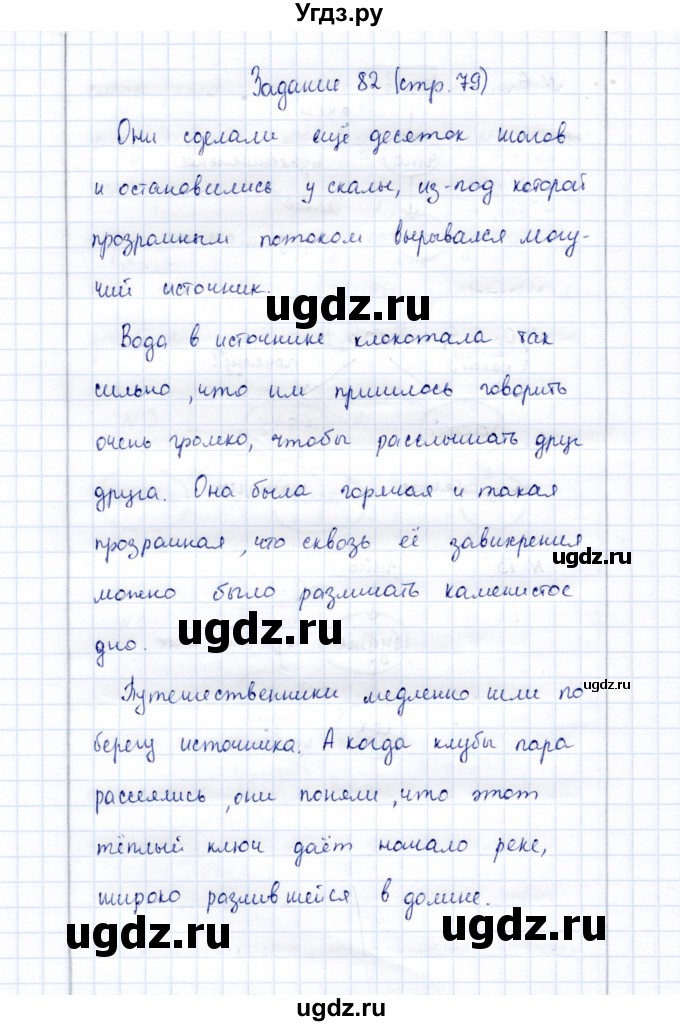 Угдз.ру
Задание 82 (стр. 79)
Они сделали ещё десяток шагов
и остановились у скалы, из-под которой
прозрачным потоком вырывался могу-
чий источник.
ugdz.ru
Вода в источнике клокотала так
сильно, что им пришлось говорить
очень громко, чтобы расслышать друг
друга. Она была горячая и такая
прозрачная, что сквозь её завихрения
ugdz.ru
можно было различать каменистое
ugdz.ru
дно.
Путешественники медленно шли по
ugdz.ru
берегу источника. А когда клубы пара
рассеялись, они поняли, что этот
тёплый ключ даёт начало реке,
широко разлившейся в долине.
ugdz.ru
ugdz.ru
ugdz.ru